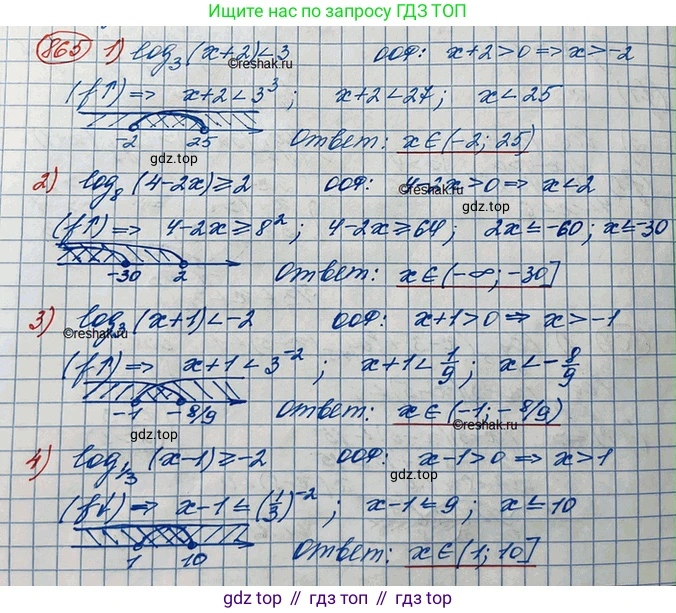 Ищите решение по запросу ГДЗ ТОП
865 1) log₃(x+2)<3 ООФ: x+2>0 => x>-2
©reshak.ru
(f↑) => x+2<3³; x+2<27; x<25
-2 25 Ответ: x∈(-2; 25)
gdz.top
2) log₈(4-2x)≥2 ООФ: 4-2x>0 => x<2
©reshak.ru
(f↑) => 4-2x≥8²; 4-2x≥64; 2x≤-60; x≤-30
-30 2 Ответ: x∈(-∞; -30]
gdz.top
3) log₃(x+1)<-2 ООФ: x+1>0 => x>-1
©reshak.ru
(f↑) => x+1<3⁻²; x+1<1/9; x<-8/9
-1 -8/9 Ответ: x∈(-1; -8/9)
©reshak.ru
gdz.top
4) log₁/₃(x-1)≥-2 ООФ: x-1>0 => x>1
(f↓) => x-1≤(1/3)⁻²; x-1≤9; x≤10
1 10 Ответ: x∈(1; 10]
gdz.top // гдз топ // gdz.top